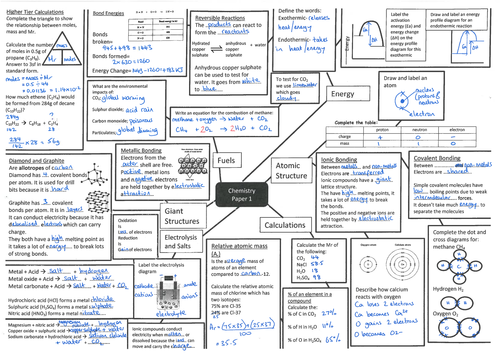 Higher Tier Calculations
Complete the triangle to show
the relationship between moles,
mass and Mr.
Calculate the number
of moles in 0.5g of
propene (C₃H₈).
Answer to 3sf in
standard form.
mass
moles
Mr
What mass of ethene (C₂H₄) would
be formed from 284g of decane
(C₁₀H₂₂)?
284g
142
28
Bond Energies
Bonds
broken:
Bonds formed=
2x 630 = 1260
Energy Change=
Reversible Reactions
The products can react to
form the reactants
Hydrated
copper
sulphate
anhydrous
copper
sulphate
+ water
Anhydrous copper sulphate
can be used to test for
water. It goes from white
to blue
Define the words:
Exothermic- releases
heat/energy
Endothermic- takes
in heat/energy
Label the
activation
energy (Ea) and
energy change
(ΔH) on the
energy profile
diagram for this
exothermic
reaction
Draw and label an
energy profile diagram for an
endothermic reaction
Energy
To test for CO₂
we use limewater
which goes
cloudy
Draw and label an atom
nucleus
(proton &
neutron)
electron
Complete the table:
proton
neutron
electron
charge
+
0
-
mass
1
1
0
What are the environmental
impacts of:
CO₂ global warming
Sulphur dioxide: acid rain
Carbon monoxide: poisonous
Particulates: global dimming
Write an equation for the combustion of methane:
methane + oxygen → water + CO₂
CH₄ + 2O₂ → 2H₂O + CO₂
Fuels
Atomic
Structure
Chemistry
Paper 1
Giant
Structures
Electrolysis
and Salts
Calculations
Metallic Bonding
Electrons from the
outer shell are free.
Positive metal ions
and negative electrons
are held together by electrostatic
attraction
Diamond and Graphite
Are allotropes of carbon
Diamond has 4 covalent bonds
per atom. It is used for drill
bits because it is hard
Graphite has 3 covalent
bonds per atom. It is in layers
It can conduct electricity because it has
delocalised electrons which can carry
charge.
They both have a high melting point as
it takes a lot of energy to break lots
of strong bonds.
Ionic Bonding
Between metals and non-metals
Electrons are transferred
Ionic compounds have a giant
lattice structure.
The have high melting points, it
takes a lot of energy to break
the bonds.
The positive and negative ions are
held together by electrostatic
attraction.
Covalent Bonding
Between non-metals
Electrons are shared
Simple covalent molecules have
low boiling points due to weak
intermolecular forces.
It doesn't take much energy to
separate the molecules
Oxidation
is
loss of electrons
Reduction
is
gain of electrons
Label the electrolysis
diagram
cathode
anode
cation
anion
electrolyte
Metal + Acid → salt + hydrogen
Metal oxide + Acid → salt + water
Metal carbonate + Acid → salt + water + CO₂
Hydrochloric acid (HCl) forms a metal chloride
Sulphuric acid (H₂SO₄) forms a metal sulphate
Nitric acid (HNO₃) forms a metal nitrate
Ionic compounds conduct
electricity when molten or
dissolved because the ions can
move and carry the charge
Relative atomic mass
(Aᵣ)
Is the average mass of
atoms of an element
compared to carbon-12.
Calculate the relative atomic
mass of chlorine which has
two isotopes:
75% are Cl-35
Ar = (75x35)+(25x37)
100
= 35.5
Calculate the Mr of
the following:
CO₂ 44
NaCl 58.5
H₂O 18
H₂SO₄ 98
% of an element in a
compound
Calculate the:
% of C in CO₂ 27%
% of H in H₂O 11%
% of O in H₂SO₄ 65%
Describe how calcium
reacts with oxygen
Ca loses 2 electrons
Ca becomes Ca²⁺
O gains 2 electrons
O becomes O²⁻
Complete the dot and
cross diagrams for:
methane CH₄
Hydrogen H₂
Oxygen O₂